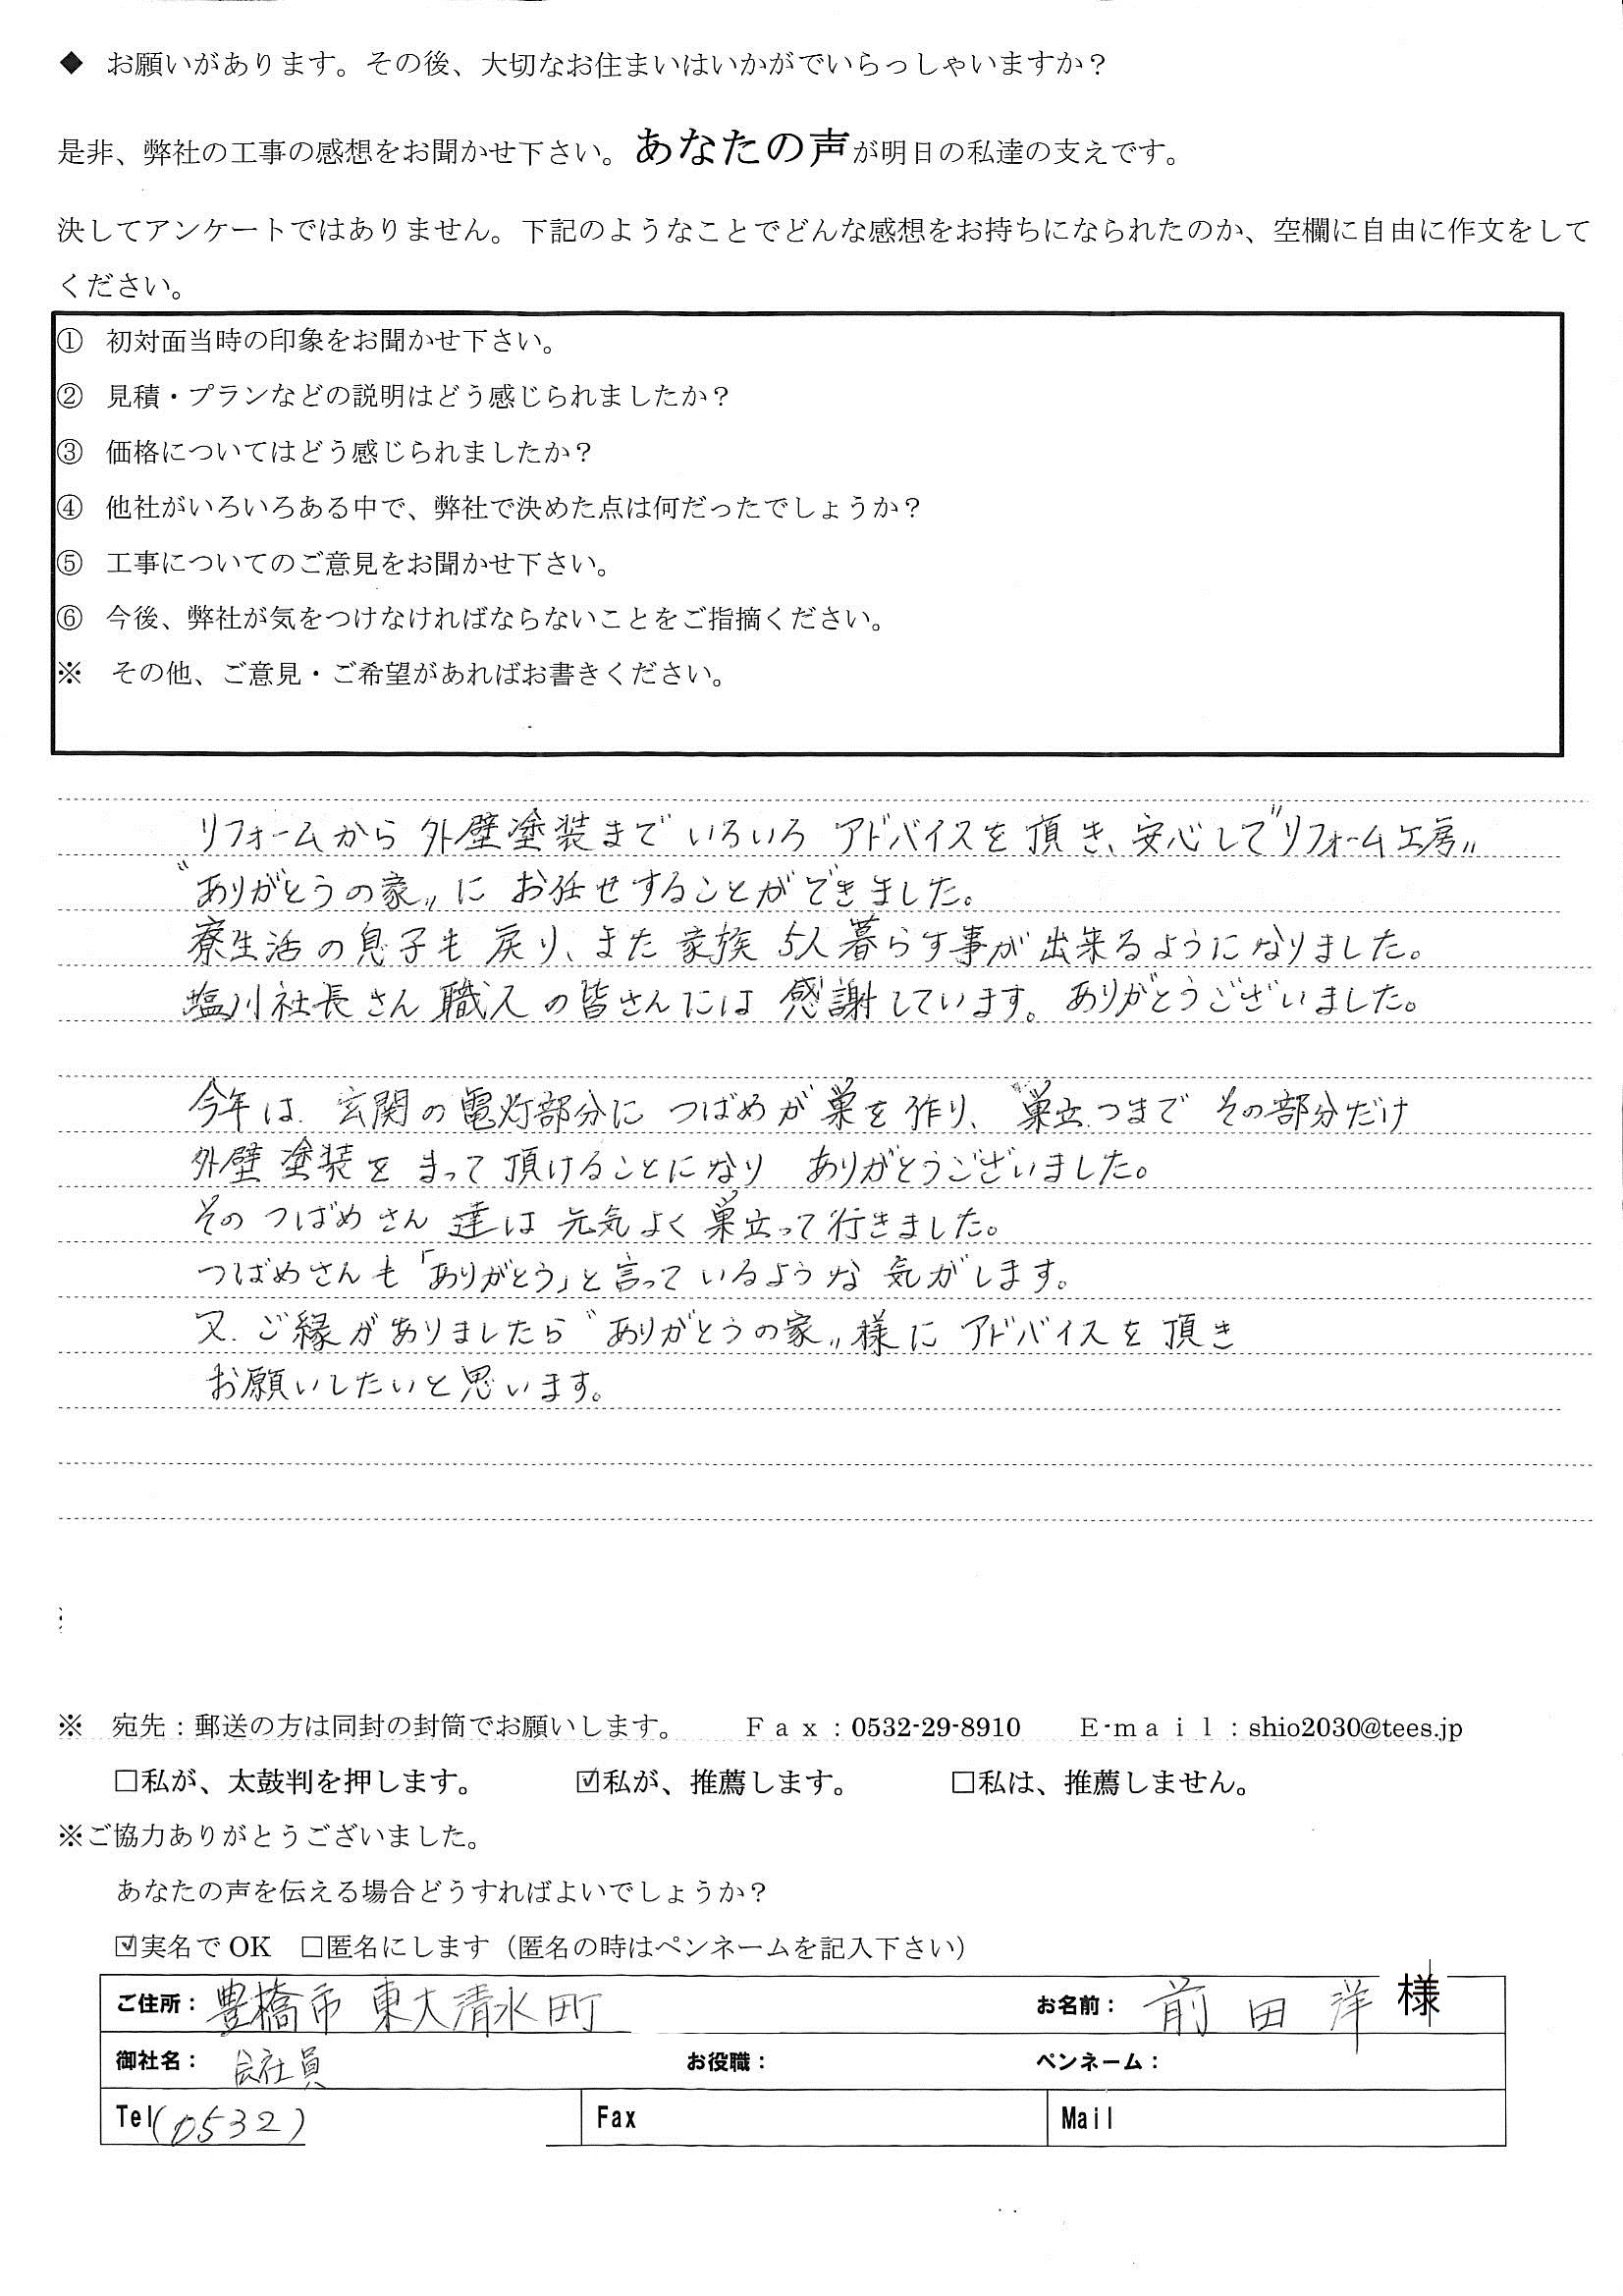 ◆ お願いがあります。その後、大切なお住まいはいかがでいらっしゃいますか？
是非、弊社の工事の感想をお聞かせ下さい。あなたの声が明日の私達の支えです。
決してアンケートではありません。下記のようなことでどんな感想をお持ちになられたのか、空欄に自由に作文をして
ください。
① 初対面当時の印象をお聞かせ下さい。
② 見積・プランなどの説明はどう感じられましたか？
③ 価格についてはどう感じられましたか？
④ 他社がいろいろある中で、弊社で決めた点は何だったでしょうか？
⑤ 工事についてのご意見をお聞かせ下さい。
⑥ 今後、弊社が気をつけなければならないことをご指摘ください。
※ その他、ご意見・ご希望があればお書きください。
リフォームから外壁塗装までいろいろアドバイスを頂き、安心して〝リフォーム工房〟
〝ありがとうの家〟にお任せすることができました。
寮生活の息子も戻り、また家族5人暮らす事が出来るようになりました。
塩川社長さん職人の皆さんには感謝しています。ありがとうございました。
今年は、玄関の電灯部分につばめが巣を作り、巣立つまでその部分だけ
外壁塗装をまって頂けることになりありがとうございました。
そのつばめさん達は元気よく巣立って行きました。
つばめさんも「ありがとう」と言っているような気がします。
又、ご縁がありましたら〝ありがとうの家〟様にアドバイスを頂き
お願いしたいと思います。
※ 宛先：郵送の方は同封の封筒でお願いします。 Ｆａｘ：0532-29-8910 Ｅ-ｍａｉｌ：shio2030@tees.jp
□私が、太鼓判を押します。 ☑私が、推薦します。 □私は、推薦しません。
※ご協力ありがとうございました。
あなたの声を伝える場合どうすればよいでしょうか？
☑実名で OK □匿名にします（匿名の時はペンネームを記入下さい）
ご住所： 豊橋市 東大清水町 お名前： 前田洋 様
御社名： 会社員 お役職： ペンネーム：
Tel (0532) Fax Mail